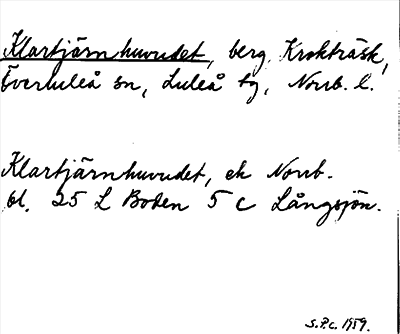 Klartjärnhuvudet, berg, Krokträsk,
Överluleå sn, Luleå tg, Norrb. l.
Klartjärnhuvudet, ek Norrb.
bl. 25 L Boden 5 c Långsjön.
S.P.c. 1959.